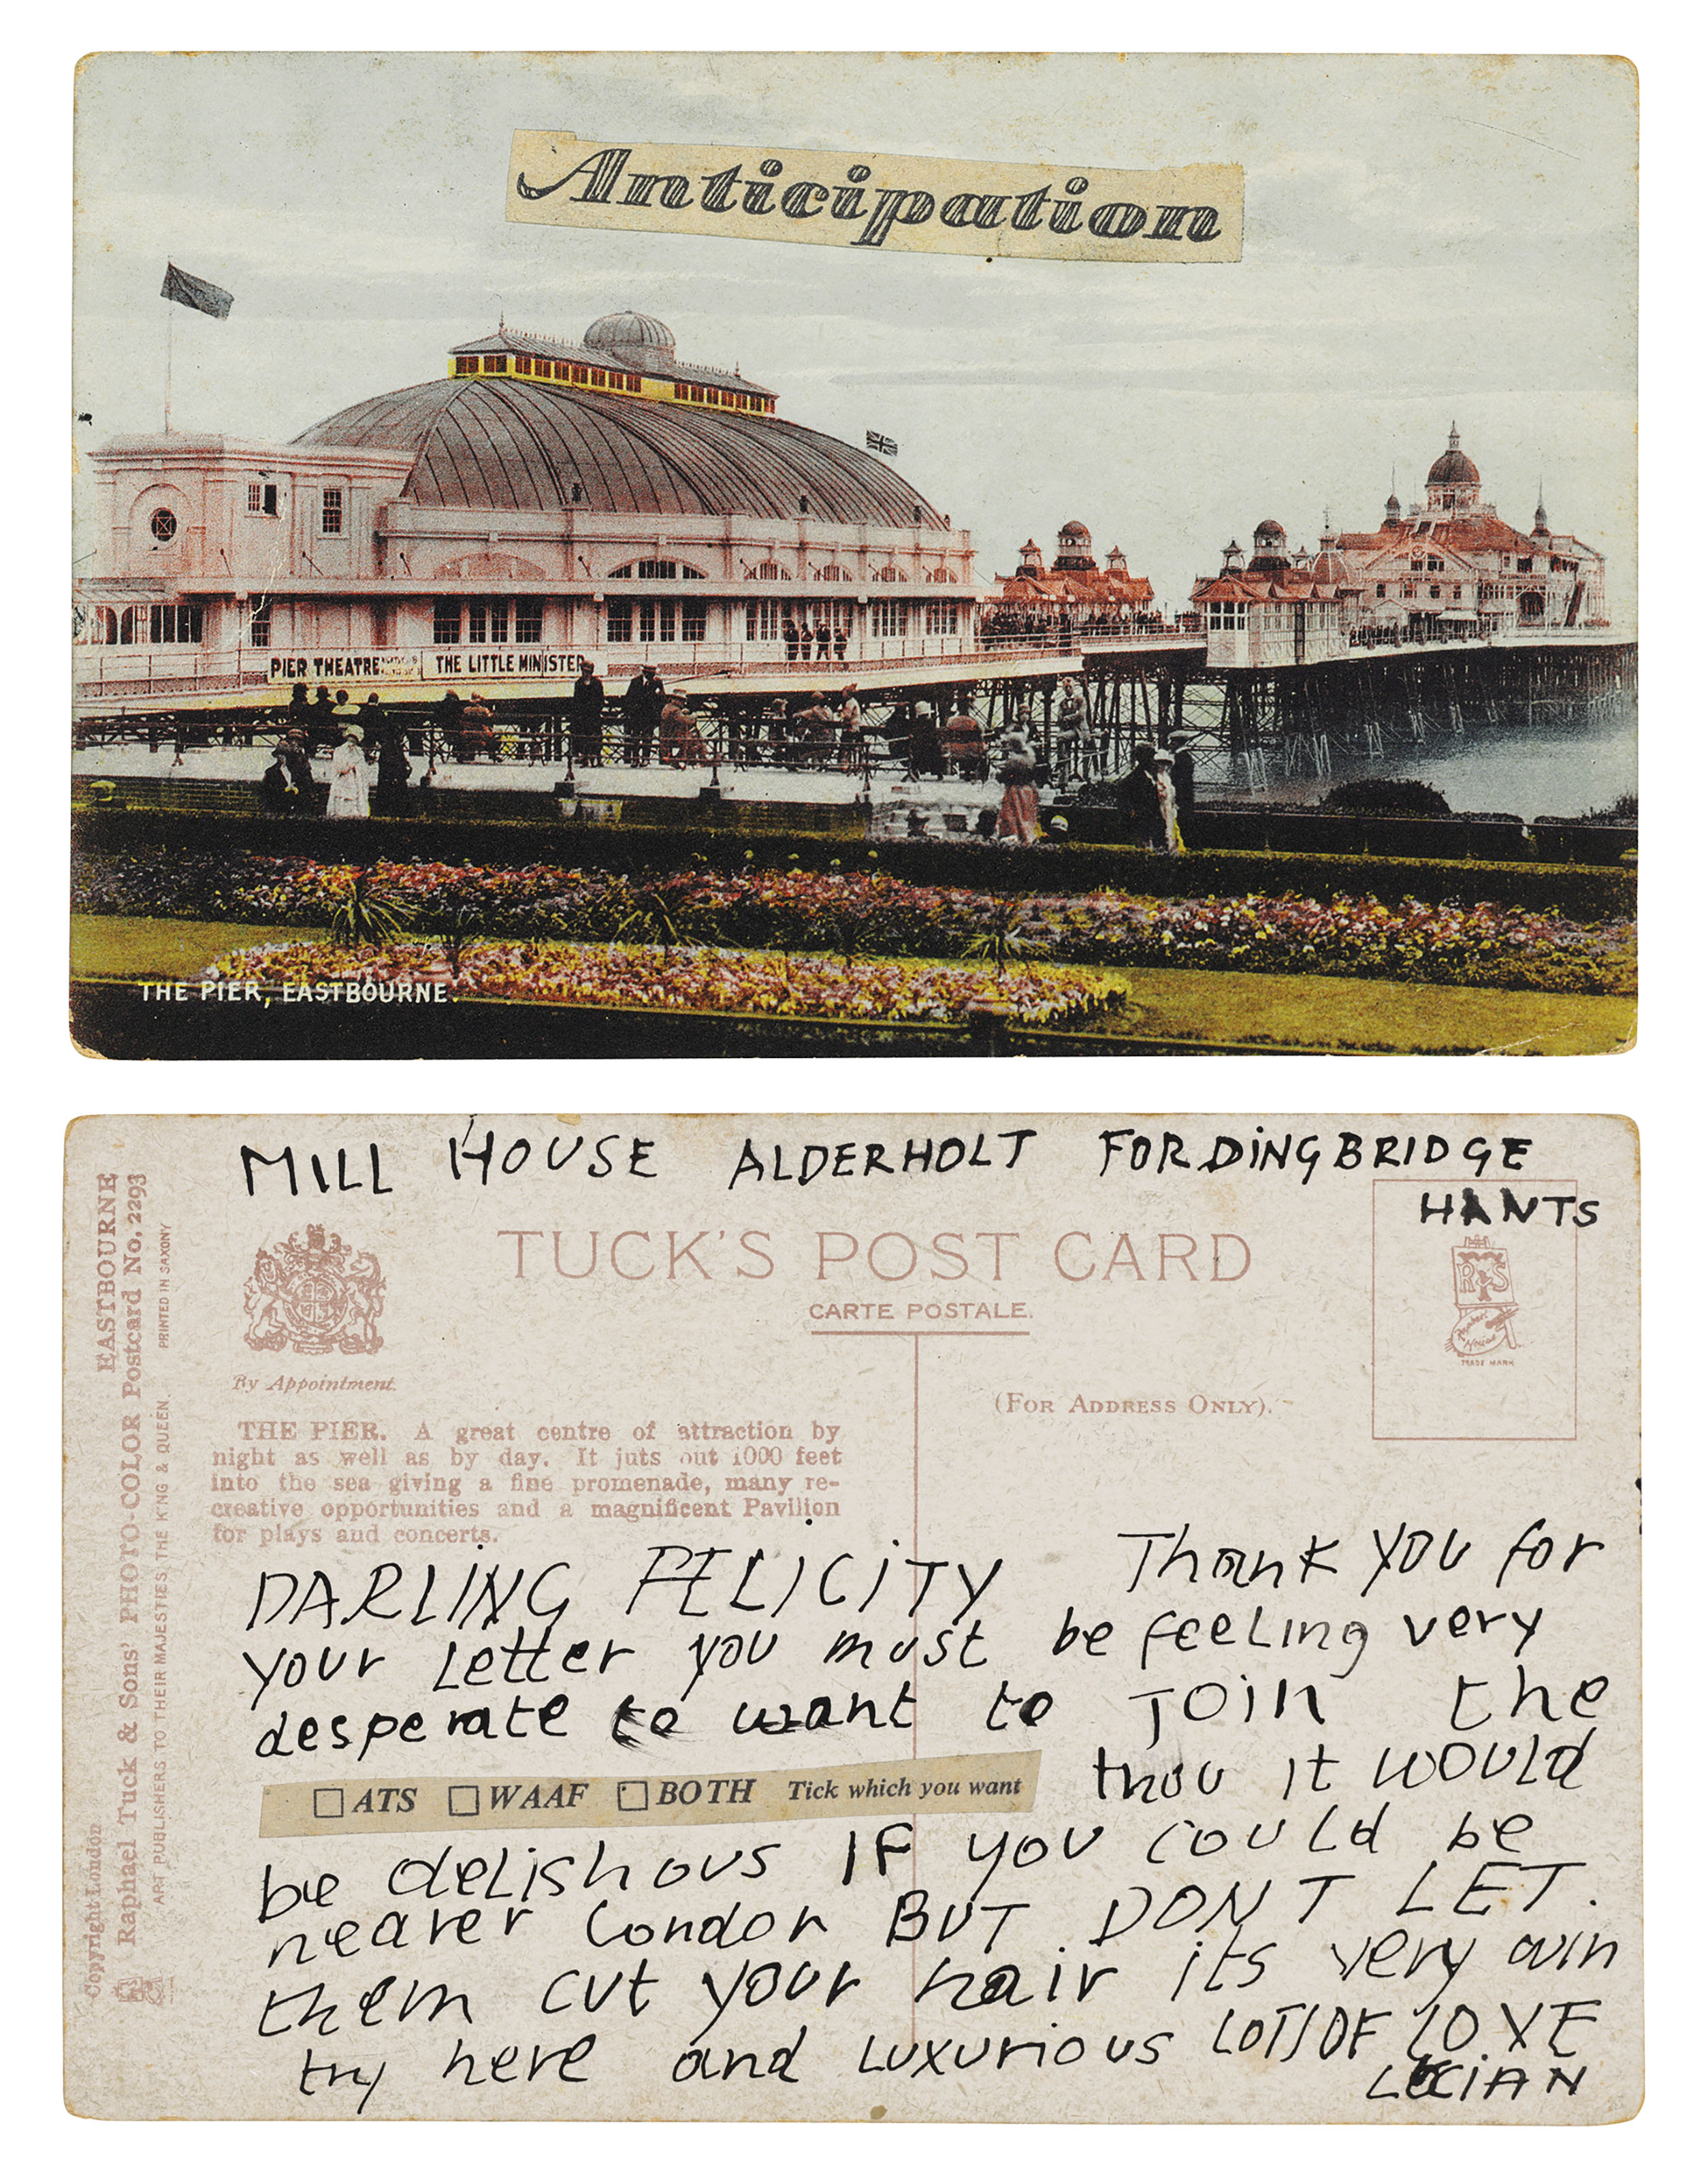 Anticipation
PIER THEATRE THE LITTLE MINISTER
THE PIER, EASTBOURNE.
MILL HOUSE ALDERHOLT FORDINGBRIDGE
HANTS
EASTBOURNE
Raphael Tuck & Sons' PHOTO-COLOR Postcard No. 2293
ART PUBLISHERS TO THEIR MAJESTIES THE KING & QUEEN. PRINTED IN SAXONY
Copyright London
TUCK'S POST CARD
CARTE POSTALE.
By Appointment.
(FOR ADDRESS ONLY).
R S
TRADE MARK
THE PIER. A great centre of attraction by
night as well as by day. It juts out 1000 feet
into the sea giving a fine promenade, many re-
creative opportunities and a magnificent Pavilion
for plays and concerts.
DARLING FELICITY Thank you for
your Letter you must be feeling very
desperate to want to JOIN the
ATS WAAF BOTH Tick which you want thou it WOULd
be delishous IF you could be
nearer London BUT DONT LET.
them cut your hair its very win
try here and Luxurious LOTS OF LOVE
LUCIAN